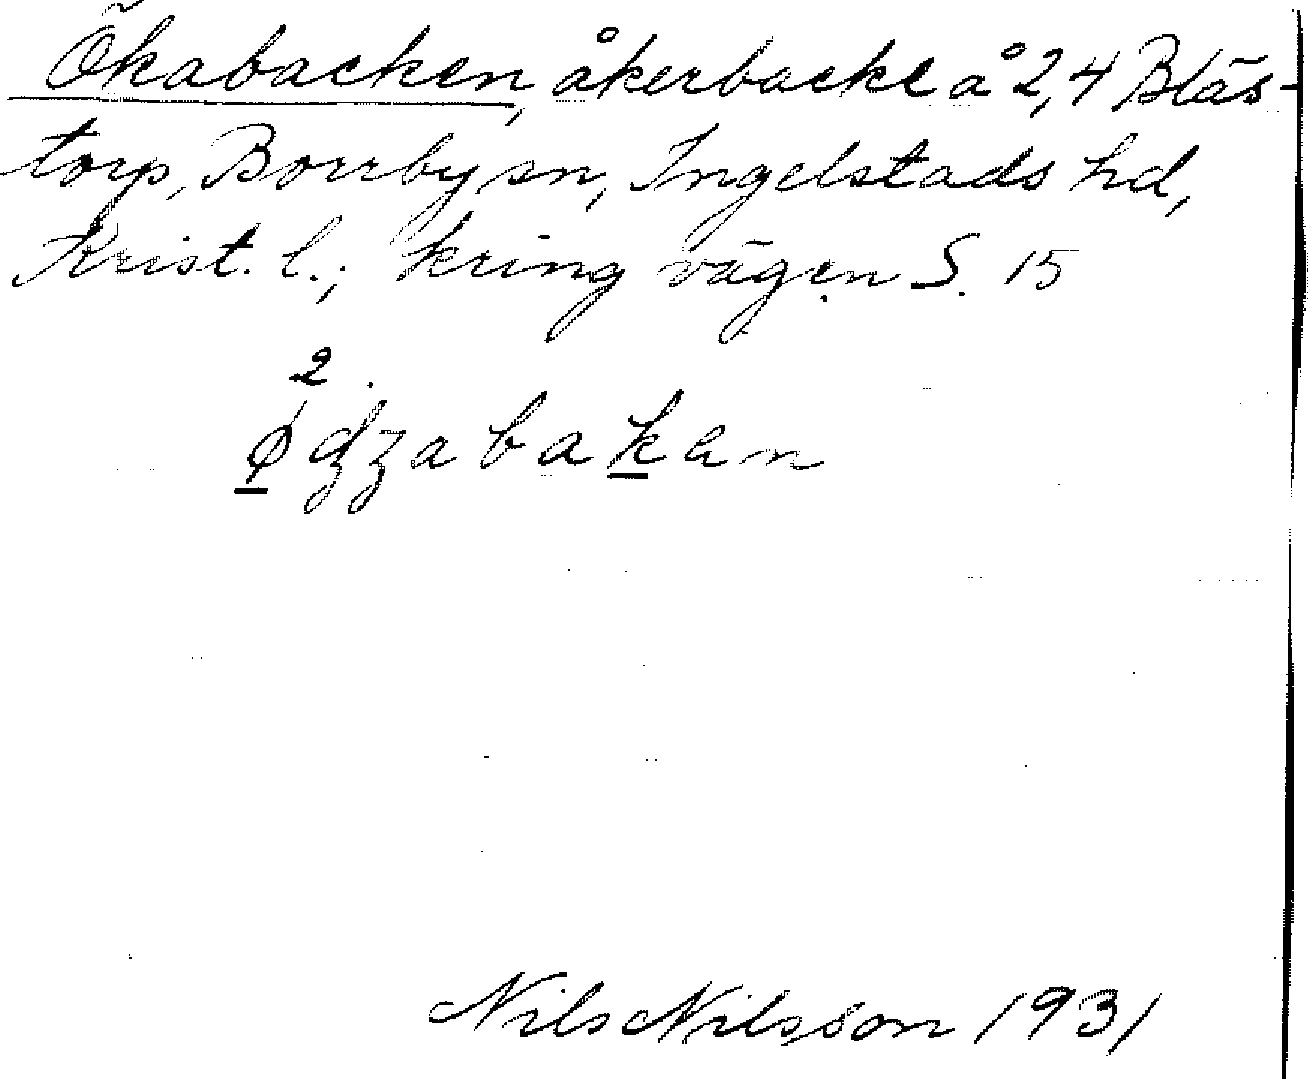 Ökabacken, åkerbacke å 2,4 Bläs-
torp, Borrby sn, Ingelstads hd,
Krist. l.; kring vägen S. 15
2
ødʒabakan
Nils Nilsson 1931